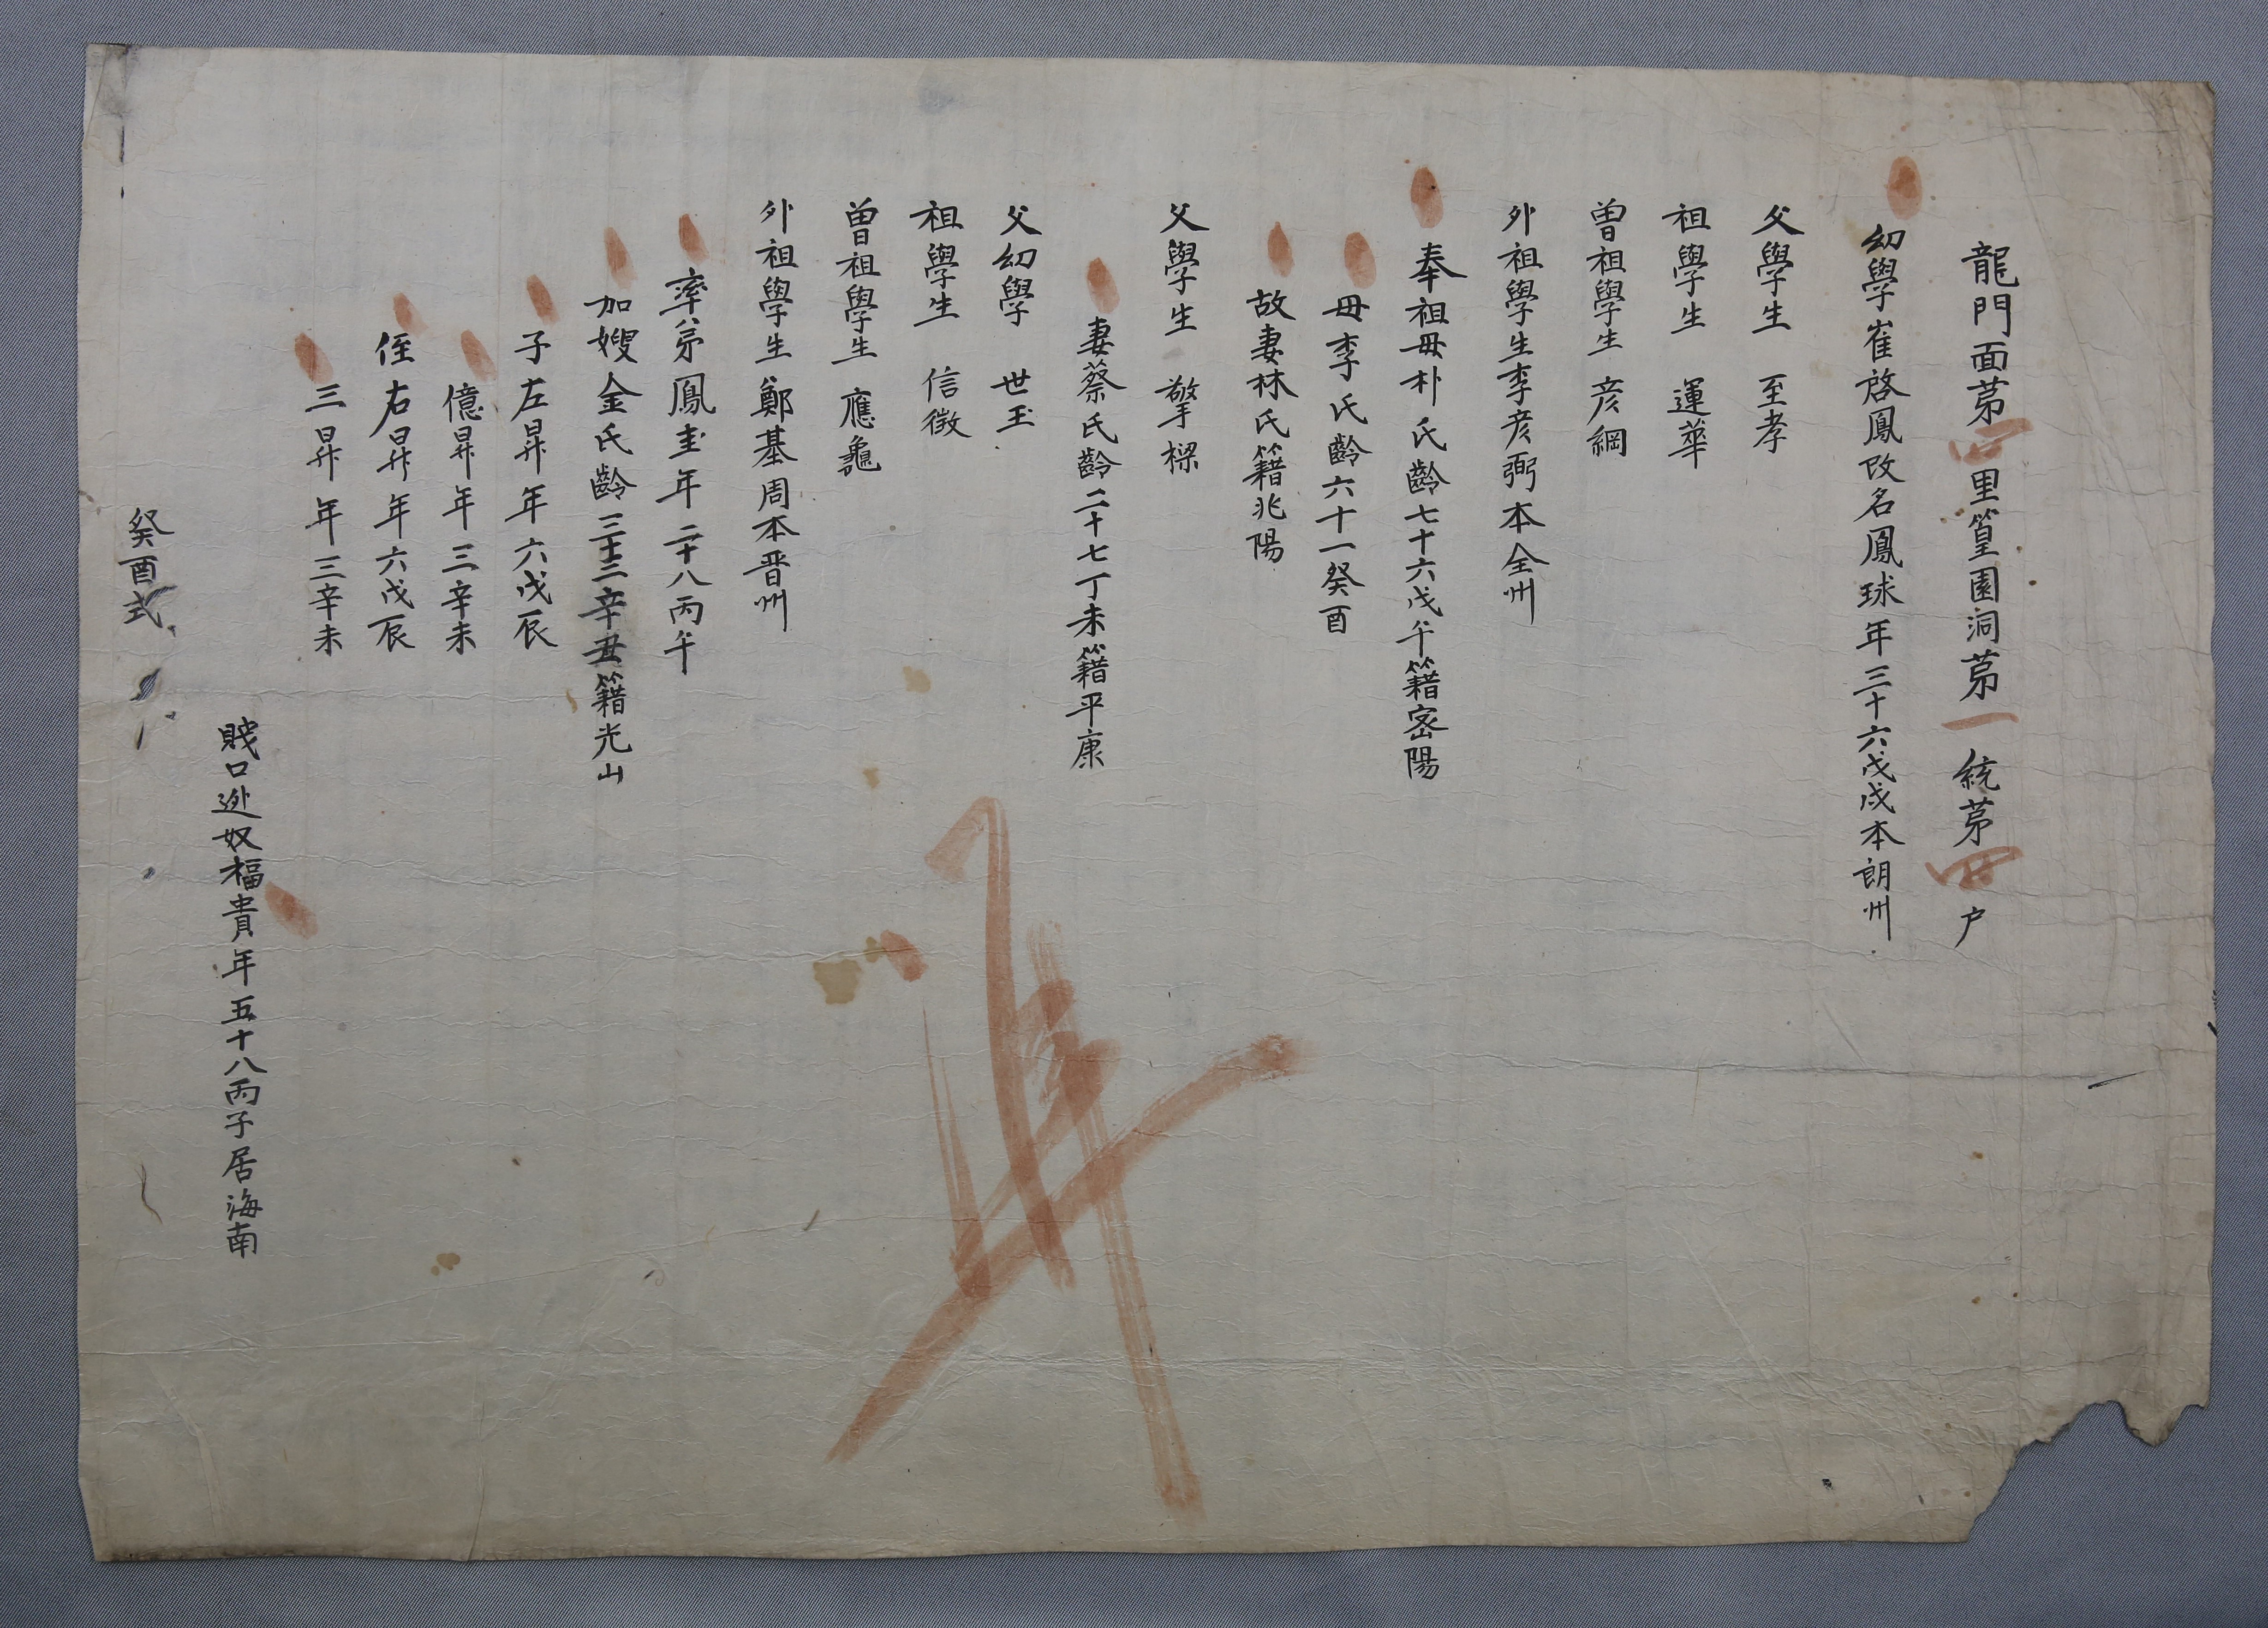 龍門面苐四里篁園洞苐一統苐四户
幼學崔啓鳳改名鳳球年三十六戊戌本朗州
父學生 至孝
祖學生 運華
曽祖學生 彦綱
外祖學生李彦弼本全州
奉祖母朴氏齡七十六戊午籍密陽
母李氏齡六十一癸酉
故妻林氏籍兆陽
父學生 擎樑
妻蔡氏齡二十七丁未籍平康
父幼學 世玉
祖學生 信徵
曽祖學生 應龜
外祖學生鄭基周本晋州
率苐鳳圭年二十八丙午
加嫂金氏齡三十三辛丑籍光山
子左昇年六戊辰
億昇年三辛未
侄右昇年六戊辰
三昇年三辛未
賤口逃奴福貴年五十八丙子居海南
癸酉式